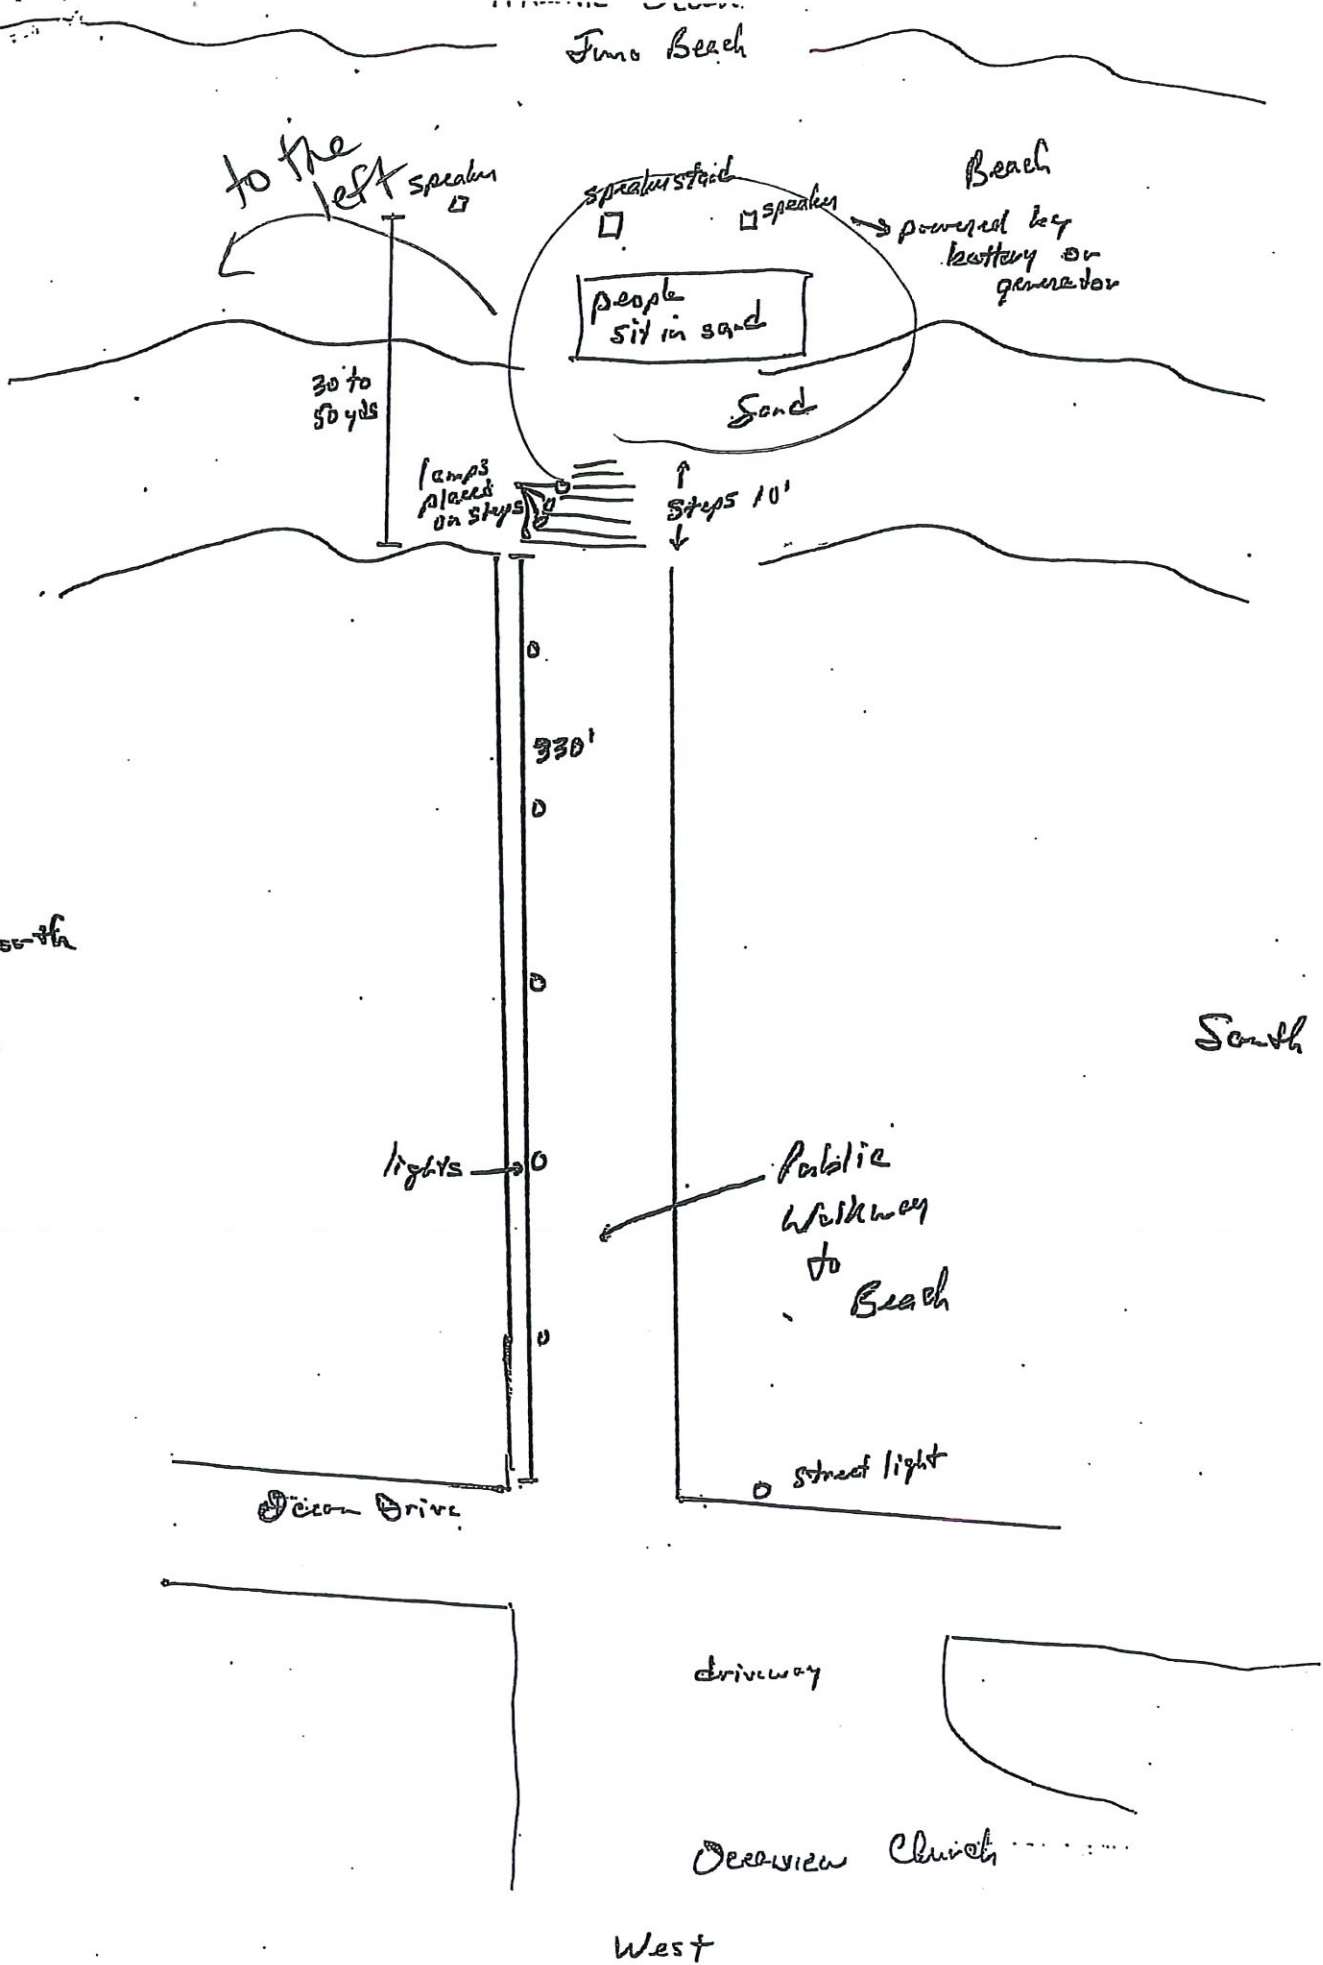 Juno Beach
to the
left
speaker
speaker staid
speaker
Beach
powered by
battery or
generator
people
sit in sand
30 to
50 yds
Sand
lamps
placed
on steps
Steps 10'
330'
South
lights
Public
Walkway
to
Beach
street light
Ocean Drive
driveway
Oceanview Church
West